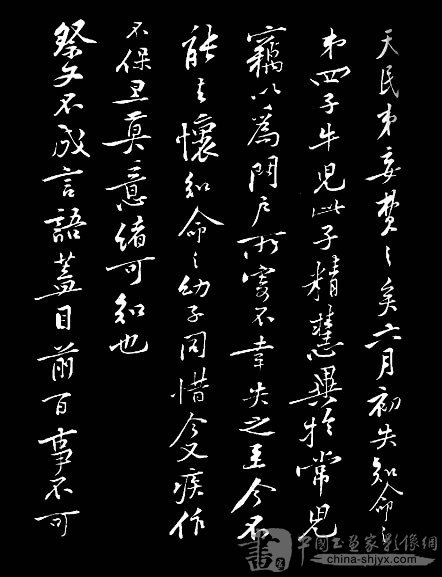 天民弟矣六月初失知命之
弟四子牛兒此子精慧異於常兒
竊以為門戶所寄不幸失之至今不
能忘懷知命之幼子同惜今又疾作
不保旦莫意緒可知也
祭文不成言語蓋目前百事不可
中國书画家影像網
china-shjyx.com